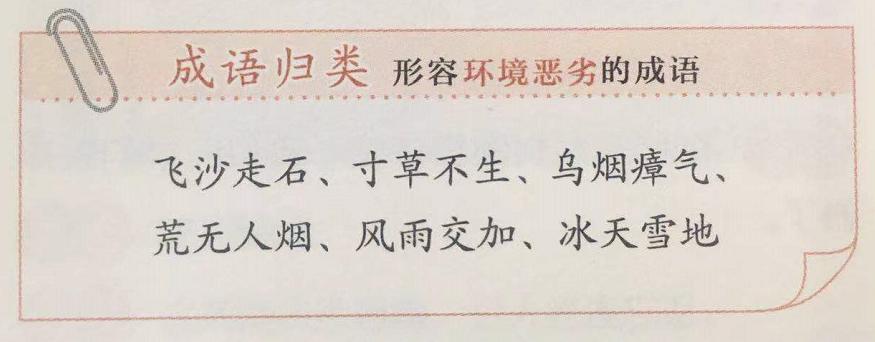 成语归类 形容环境恶劣的成语
飞沙走石、寸草不生、乌烟瘴气、
荒无人烟、风雨交加、冰天雪地